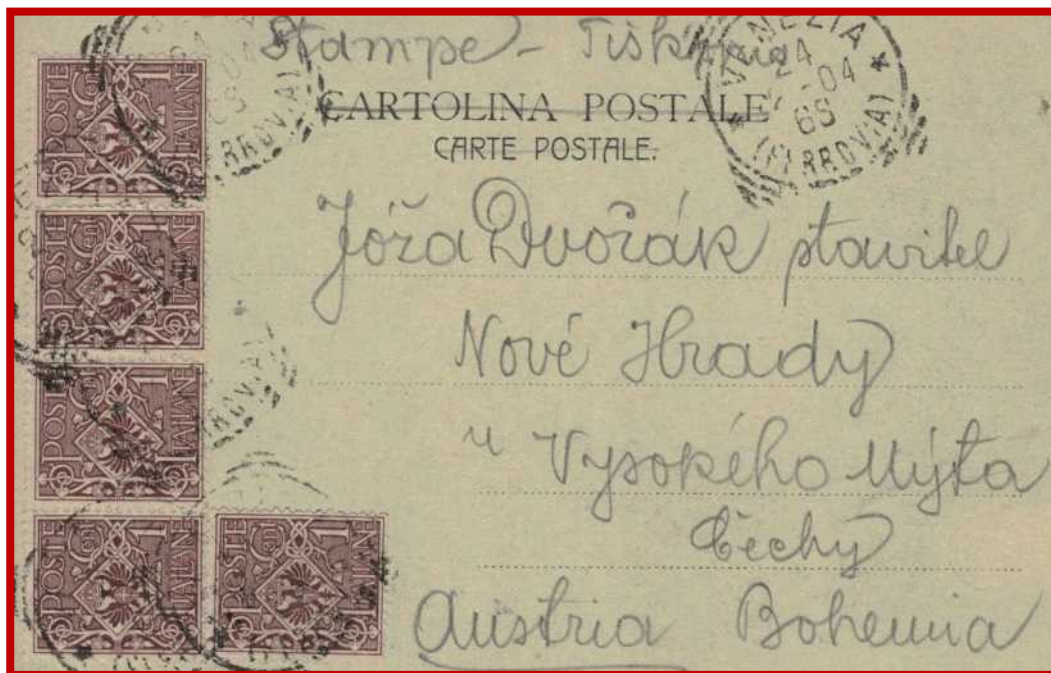 Stampe - Tiskopis
CARTOLINA POSTALE
CARTE POSTALE.
VENEZIA
24
04
6S
(FERROVIA)
Jóža Dvořák stavitel
Nové Hrady
u Vysokého Mýta
Čechy
Austria Bohemia
POSTE
ITALIANE
1
POSTE
ITALIANE
1
POSTE
ITALIANE
1
POSTE
ITALIANE
1
POSTE
ITALIANE
1